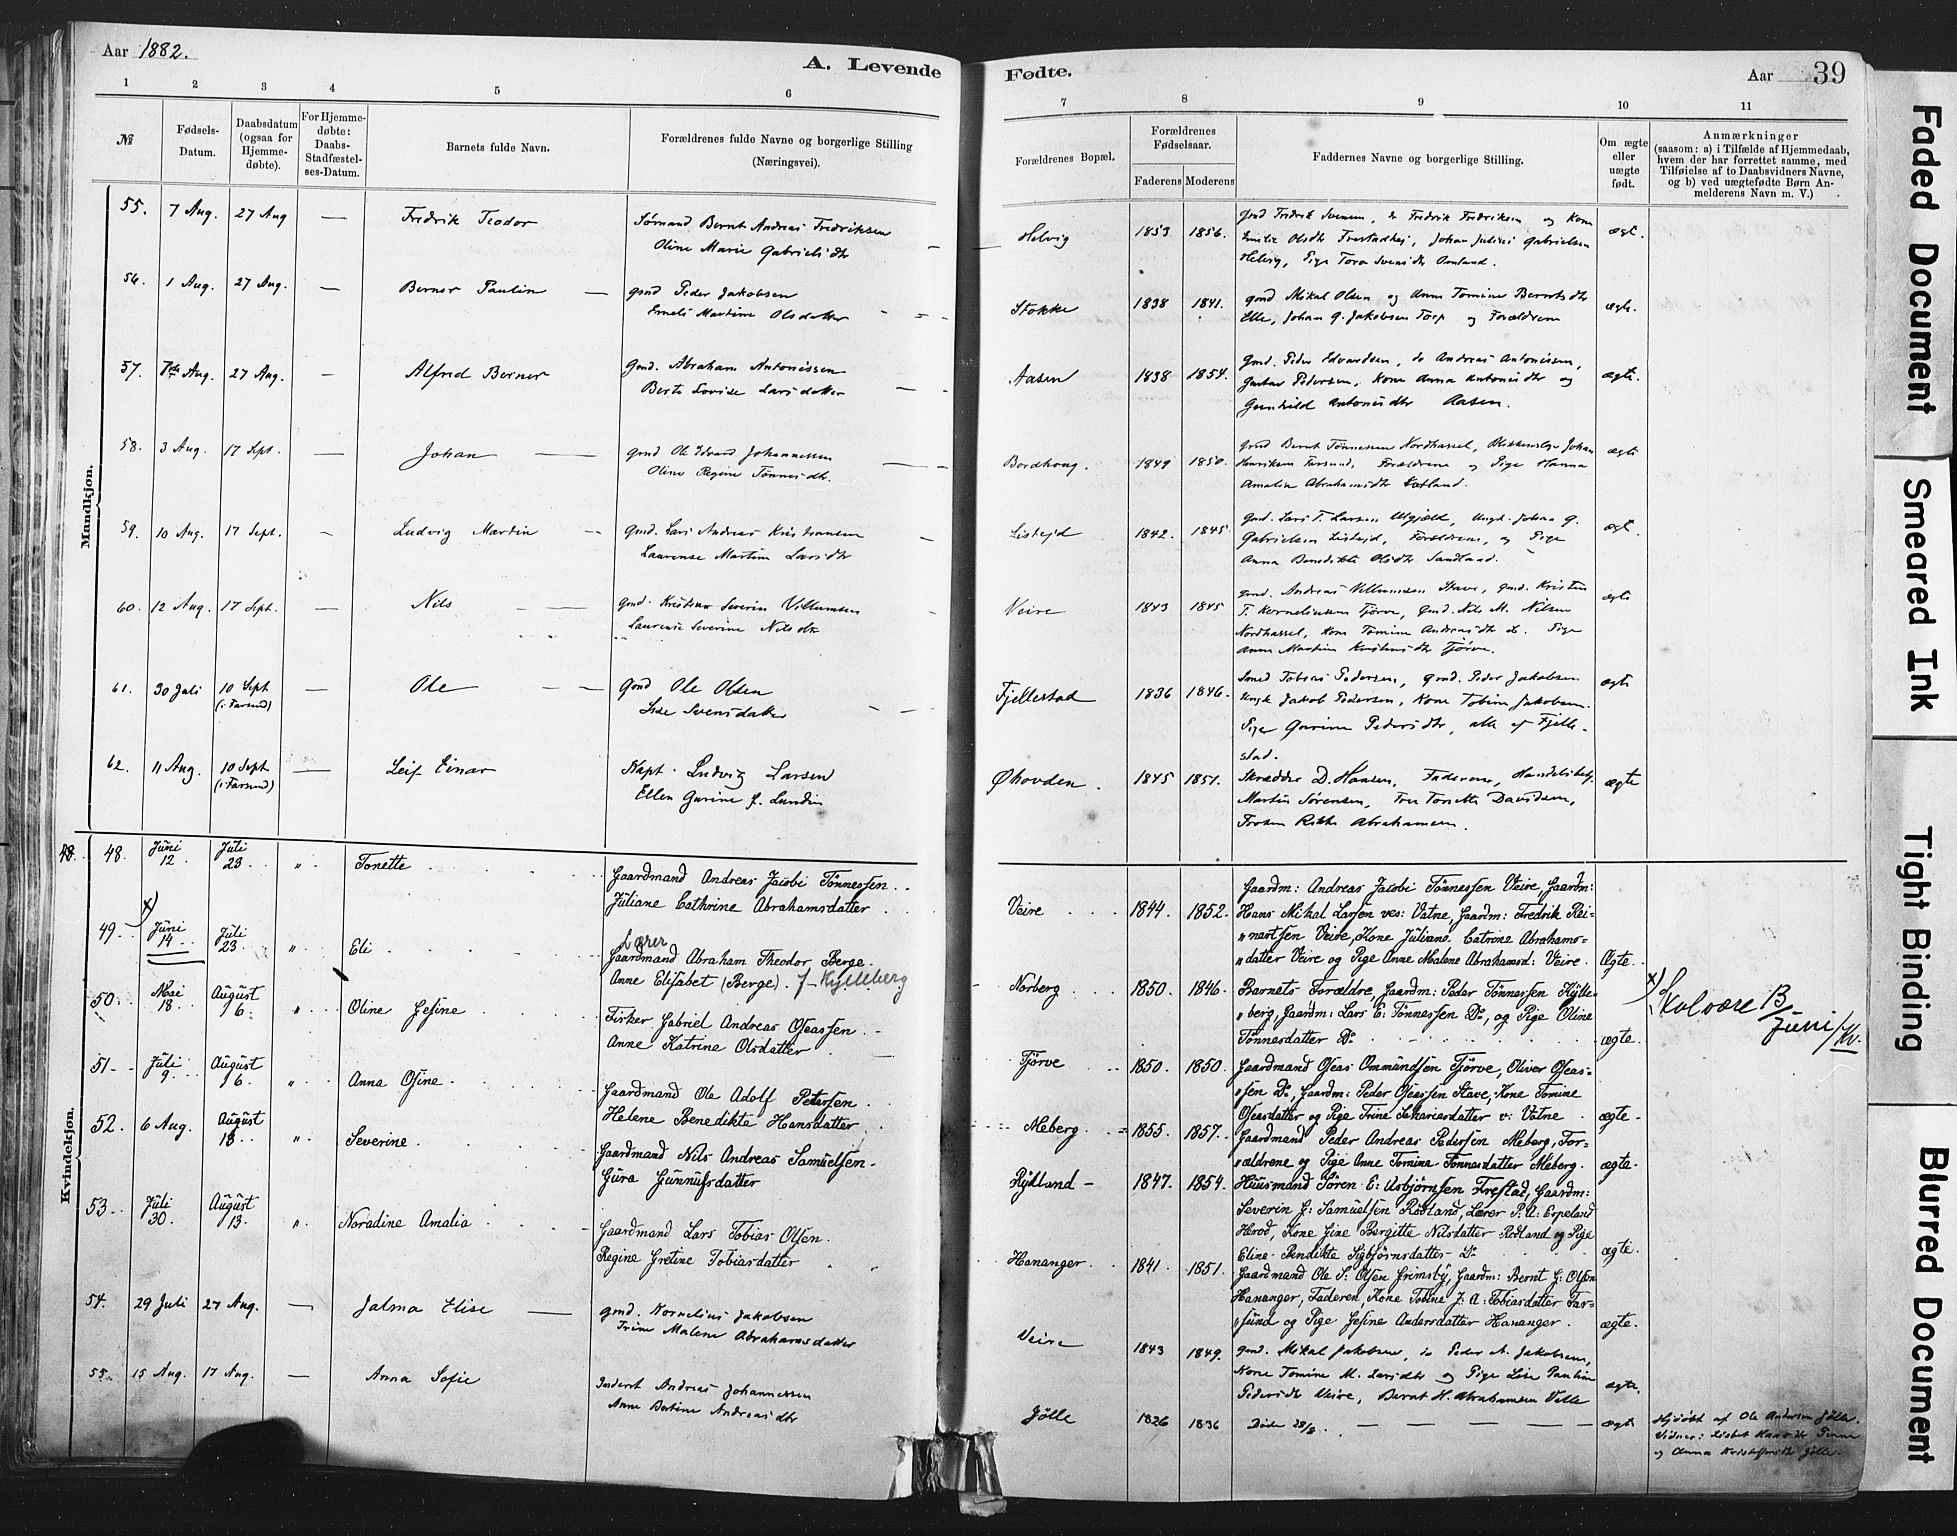 Aar 1882.
A. Levende
Fødte.
Aar 39
1 2 3 4 5 6 7 8 9 10 11
№
Fødsels-Datum.
Daabsdatum (ogsaa for Hjemme-døbte).
For Hjemme-døbte: Daabs-Stadfæstel-ses-Datum.
Barnets fulde Navn.
Forældrenes fulde Navne og borgerlige Stilling (Næringsvei).
Forældrenes Bopæl.
Forældrenes Fødselsaar.
Faderens Moderens
Faddernes Navne og borgerlige Stilling.
Om ægte eller uægte født.
Anmærkninger
(saasom: a) i Tilfælde af Hjemmedaab, hvem der har forrettet samme, med Tilføielse af to Daabsvidners Navne, og b) ved uægtefødte Børn An-melderens Navn m. V.)
Mandkjøn.
55. 7 Aug. 27 Aug — Fredrik Teodor
Sørmand Bernt Andreas Fredriksen
Oline Marie Gabrielsdtr
Helvig 1853 1856.
Gmd Fredrik Svensen, do Fredrik Fredriksen og Kone
Emilie Olsdtr, Johan Julius Gabrielsen
Helvig, Pige Tora Svensdtr Omland.
ægt.
56. 1 Aug. 27 Aug. — Berner Paulin —
gmd Peder Jakobsen
Martine Olsdatter
Stokke 1838 1841.
gmd Mikal Olsen og Anne Tomine Berntsdtr
Elle, Johan G. Jakobsen Torp og Forældrene
ægte.
57. 7de Aug. 27 Aug. — Alfred Berner
Gmd. Abraham Antonissen
Berte Lovise Larsdatter
Aasen 1838 1854.
Gmd. Peder Edvardsen, do Andreas Antonissen,
Gustav Pedersen, Kone Anna Antonisdtr og
Gunhild Antonisdtr Aasen.
ægte.
58. 3 Aug. 17 Sept. — Johan —
gmd Ole Edvard Johannessen
Oline Regine Tønnesdtr.
Bordhoug. 1849 1850.
gmd Bernt Tønnessen Nordhassel, Johan
Henriksen Farsund, Forældrene og Pige Hanna
Amalia Abrahamsdtr
ægte
59. 10 Aug. 17 Sept. — Ludvig Martin
gmd. Lars Andreas Kristiansen
Laurense Martine Larsdtr
Listejd 1842. 1845.
Gmd. Lars T. Larsen, Ungk. Johan G.
Gabrielsen Listejd, Forældrene, og Pige
Anna Benedikte Olsdtr Sandland.
ægt.
60. 12 Aug. 17 Sept. — Nils
gmd. Kristian Severin Villumsen
Laurense Severine Nilsdtr
Veire 1843 1845
gmd. Andreas Villumsen Stave, gmd. Kristen
T. Korneliussen Tjørve, Gmd. Nils M. Nilsen
Nordhassel, Kone Tomine Andreasdtr do. Pige
Anne Martine Kristensdtr Tjørve.
ægte
61. 30 Juli 10 Sept (i Farsund) — Ole
Gmd Ole Olsen
Lise Svensdatter
Fjellestad 1836 1846.
Smed Tobias Pedersen, gmd. Peder Jakobsen
Ungk Jakob Pedersen, Kone Tobine Jakobsen
Pige Gurine Pedersdtr, alle af Fjelle-
stad.
ægte
62. 11 Aug. 10 Sept (i Farsund) — Leif Einar
Kapt. Ludvig Larsen
Ellen Gurine f. Lundin
Øhovden. 1845 1851.
Skrædder D. Hansen, Faderene, Handelsbetj.
Martin Sørensen, Fru Tonette Davidsen,
Frøken Rikke Abrahamsen.
ægte
Kvindekjøn.
48. 48. Juni 12. Juli 23. " Tonette
Gaardmand Andreas Jacobi Tønnessen
Juliane Cathrine Abrahamsdatter
Veire 1844. 1852.
Gaardm: Andreas Jacobi Tønnessen Veire, Gaardm:
Hans Mikal Larsen ves: Vatne, Gaardm: Fredrik Rei-
"nartsen Veire, Kone Juliane Catrine Abrahams-
"datter Veire og Pige Anne Malene Abrahamsd: Veire.
Ægte.
49. x) Juni 14 Juli 23. " Eli
Lærer
Gaardmand Abraham Theodor Berge.
Anne Elisabet (Berge). f. Kjelleberg
Norberg 1850. 1846.
Barnets Forældre, Gaardm: Peder Tønnessen Kjølle-
"berg, Gaardm: Lars E. Tønnessen Do, og Pige Oline
Tønnesdatter Do
ægte.
x) Skal være 13/Juni/Kv.
50. Mai 18. August 6. " Oline Gesine
Fisker Gabriel Andreas Oseassen
Anne Katrine Olsdatter
Tjørve 1850. 1850.
Gaardmand Oseas Ommundsen Tjørve, Oliver Oseas-
"sen Do, Gaardm: Peder Oseassen Stave, Kone Tomine
Oseasdatter og Pige Trine Sakariasdatter v: Vatne
ægte.
51. Juli 9. August 6. " Anna Osine
Gaardmand Ole Adolf Petersen.
Helene Benedikte Hansdatter
Meberg 1855. 1857.
Gaardmand Peder Andreas Pedersen Meberg, For-
"ældrene og Pige Anne Tomine Tønnesdatter Meberg.
ægte.
52. 6 Aug. August 13. " Severine.
Gaardmand Nils Andreas Samuelsen.
Gura Gunnufsdatter
Rydland 1847. 1854.
Huusmand Sören E: Asbjørnsen Frestad, Gaardm:
Severin G: Samuelsen Rødland, Lærer P. A: Espeland
Herod, Kone Gine Bergitte Nilsdatter Rødland og Pige
Eline Bendikte Sigbjørnsdatter Do
ægte.
53. Juli 30. August 13. " Noradine Amalia
Gaardmand Lars Tobias Olsen.
Regine Gretine Tobiasdatter
Hananger 1841. 1851.
Gaardmand Ole S: Olsen Grimsby, Gaardm: Bernt G: Olsen
Hananger, Faderen, Kone Tobine J: A: Tobiasdatter Far-
"sund og Pige Gesine Andersdatter Hananger.
ægte.
54. 29 Juli 27 Aug. — Jalma Elise —
gmd. Kornelius Jakobsen
Trine Malene Abrahamsdatter
Veire 1843 1849.
gmd. Mikal Jakobsen, do Peder A. Jakobsen,
Kone Tomine M. Larsdtr og Pige Lise Pauline
Pedersdtr Veire, Bernt H. Abrahamsen Velle
ægte.
55. 15 Aug. 17 Aug. — Anna Sofie
Inderst Andreas Johannessen
Anne Bertine Andreasdtr
Jølle 1826 1836
Døde 28/8.
ægte
Hjdøbt af Ole Andersen Jølle.
Vidner: Lisbet Hansdtr
og Anna Kristoffersdtr Jølle.
Faded Document
Smeared Ink
Tight Binding
Blurred Document